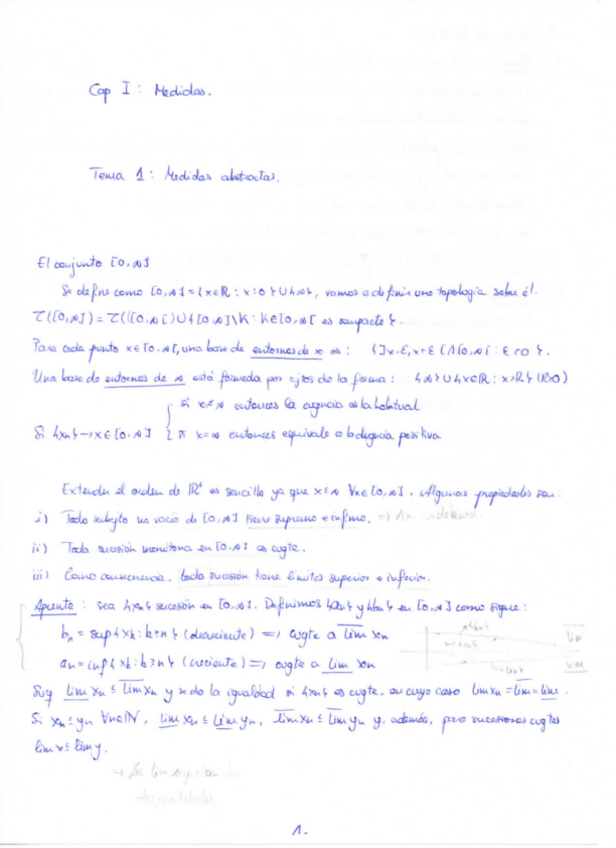 Cap I : Medidas.
Tema 1 : Medidas abstractas.
El conjunto [0,∞]
Se define como [0,∞] = {x∈ℝ : x≥0} ∪ {∞}, vamos a definir una topología sobre él.
τ([0,∞]) = τ([0,∞[) ∪ {[0,∞]\K : K⊂[0,∞[ es compacto}.
Para cada punto x∈[0,∞[, una base de entornos de x es : {]x-ε, x+ε[ ∩ [0,∞[ : ε>0}.
Una base de entornos de ∞ está formada por cjtos de la forma : {∞} ∪ {x∈ℝ : x>R} (R>0)
si x≠∞ entonces la cgencia es la habitual
Si {xn} → x∈[0,∞]
si x=∞ entonces equivale a la dgencia positiva
Extender el orden de ℝ⁺ es sencillo ya que x≤∞ ∀x∈[0,∞]. Algunas propiedades son :
i) Todo subcjto no vacío de [0,∞] tiene supremo e ínfimo.
ii) Toda sucesión monótona en [0,∞] es cvgte.
iii) Como consecuencia, toda sucesión tiene límites superior e inferior.
Apunte : sea {xn} sucesión en [0,∞]. Definimos {an} y {bn} en [0,∞] como sigue :
bn = sup{xk : k≥n} (decreciente) ⇒ cvgte a l̅i̅m̅ xn
an = inf{xk : k≥n} (creciente) ⇒ cvgte a l̲i̲m̲ xn
l̲i̲m̲ xn ≤ l̅i̅m̅ xn y la igualdad si {xn} es cvgte, en cuyo caso lim xn = l̅i̅m̅ = l̲i̲m̲.
Si xn ≤ yn ∀n∈ℕ, l̲i̲m̲ xn ≤ l̲i̲m̲ yn, l̅i̅m̅ xn ≤ l̅i̅m̅ yn y, además, para sucesiones cvgtes
lim x ≤ lim y.
1.